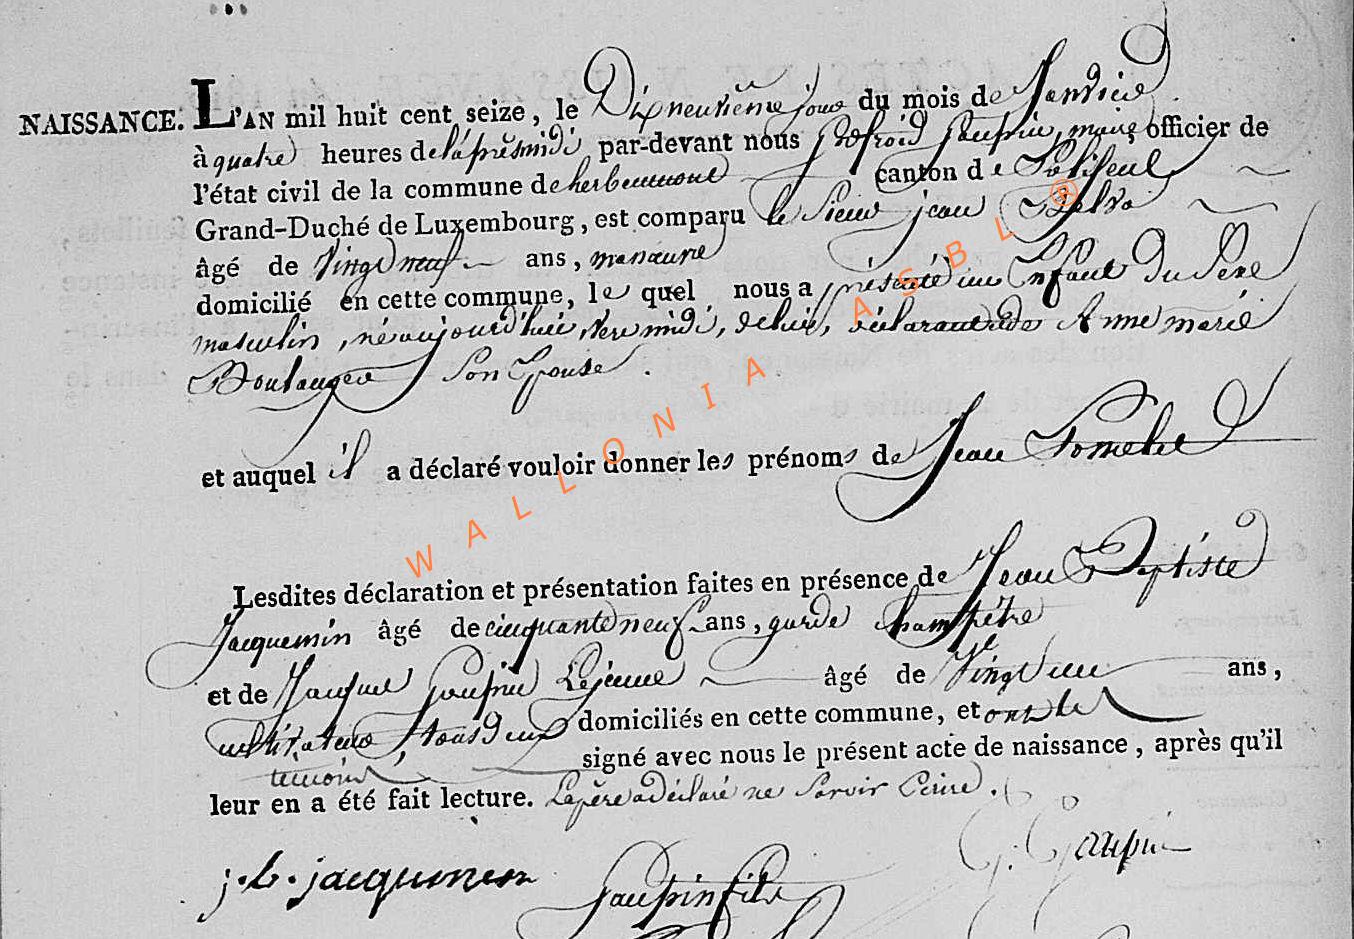 NAISSANCE. L'AN mil huit cent seize, le Dixneuvième jour du mois de Janvier
à quatre heures de l'après midi par-devant nous Godfroid Goupin, maire officier de
l'état civil de la commune de herbeumont canton de
Grand-Duché de Luxembourg, est comparu le Sieur jean
âgé de Vingt neuf ans, manœuvre
domicilié en cette commune, le quel nous a présenté un Enfant Du Sexe
masculin, né aujourd'hui, vers midi, de lui, déclarant et de Anne marie
Boulanger Son Epouse.
et auquel il a déclaré vouloir donner les prénoms de Jean
Lesdites déclaration et présentation faites en présence de Jean Baptiste
Jacquemin âgé de cinquante neuf ans, garde Champêtre
et de Goupin Lejeune âgé de Vingt un ans,
tous Deux domiciliés en cette commune, et ont les
témoins signé avec nous le présent acte de naissance, après qu'il
leur en a été fait lecture. Le père a déclaré ne Savoir Ecrire.
j. b. jacquemin Goupin fils G. Goupin
WALLONIA ASBL ®